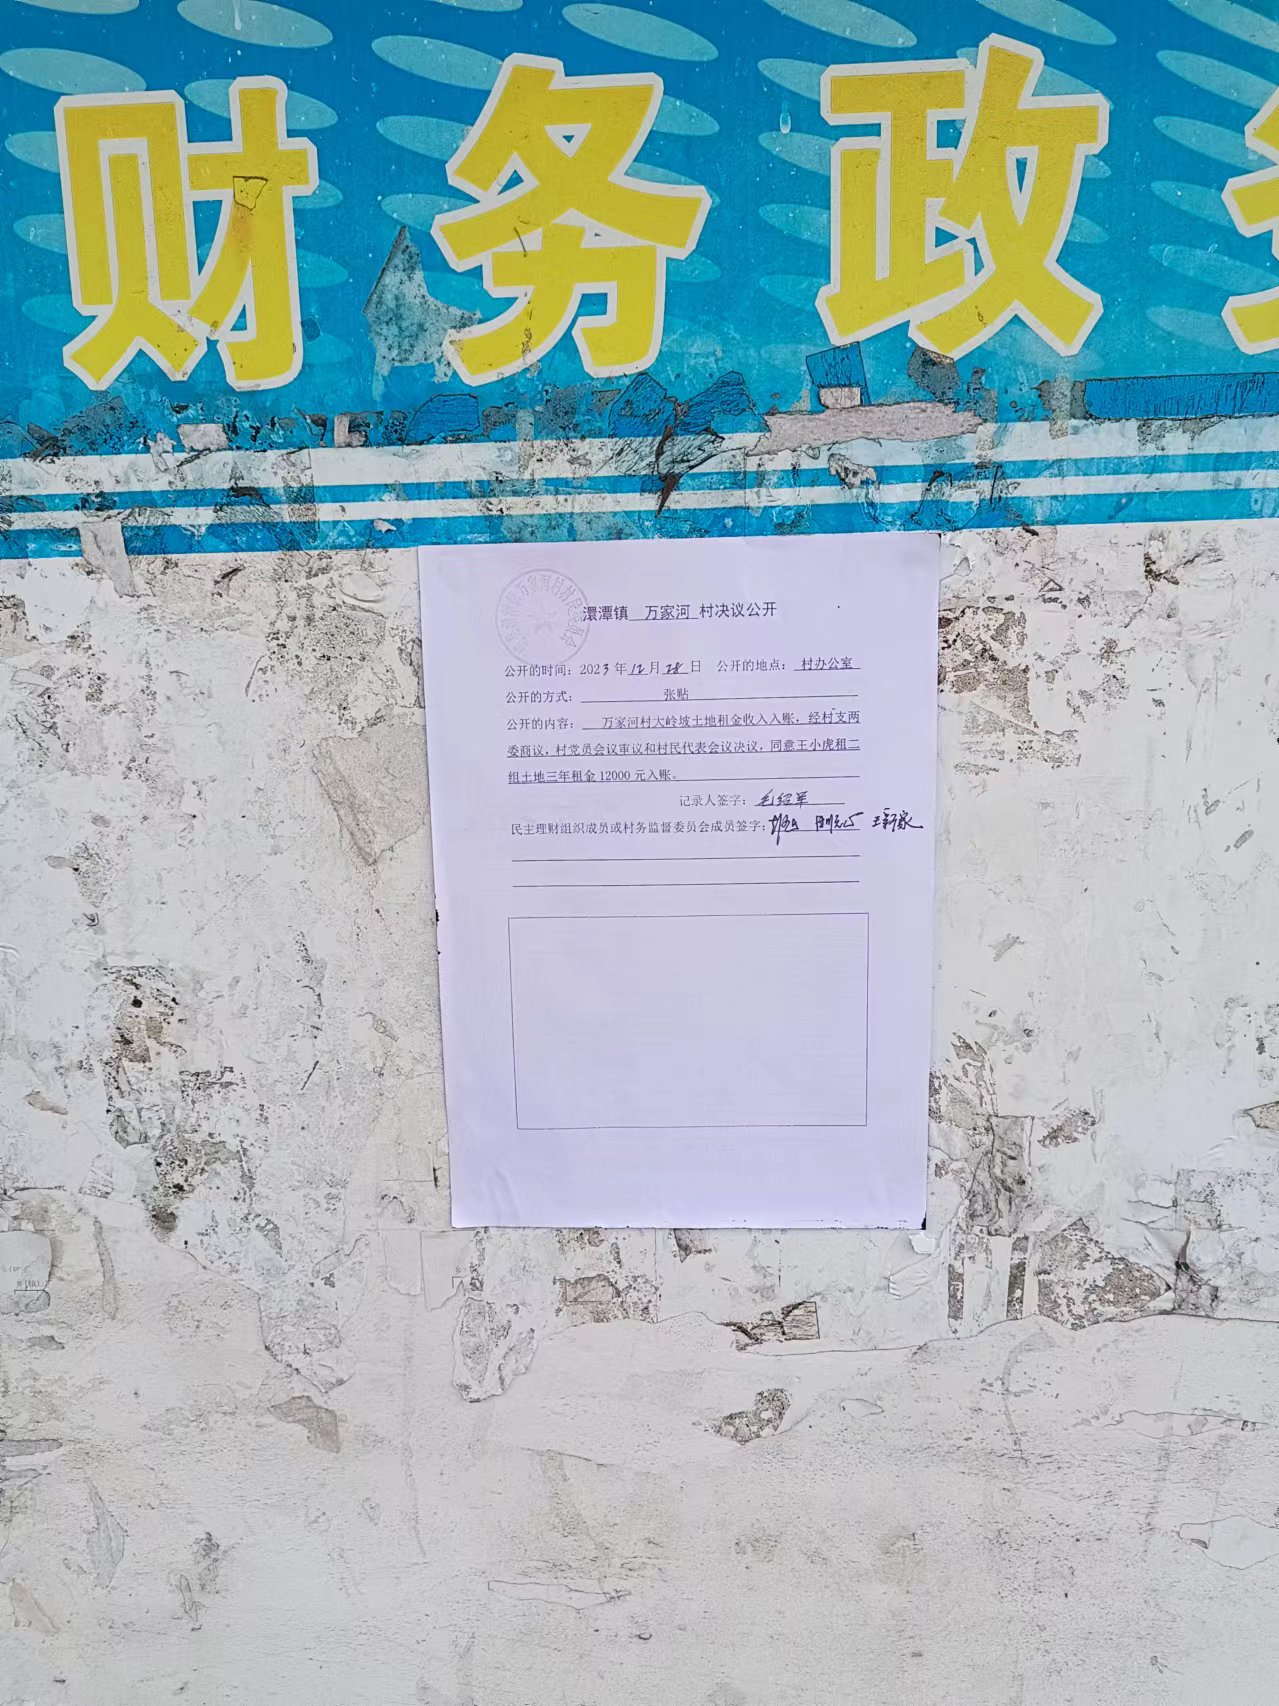 财务政
澴潭镇 万家河 村决议公开
公开的时间：2023年12月28日 公开的地点：村办公室
公开的方式：张贴
公开的内容：万家河村大岭坡土地租金收入入账，经村支两
委商议，村党员会议审议和村民代表会议决议，同意王小虎租二
组土地三年租金12000元入账。
记录人签字：毛绍军
民主理财组织成员或村务监督委员会成员签字：